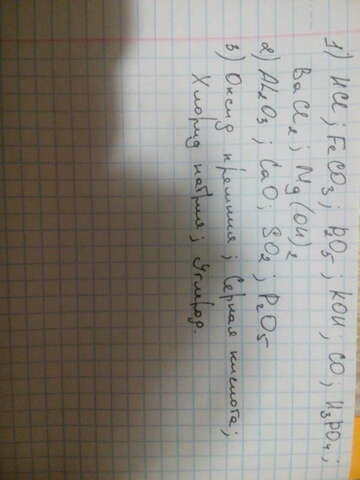 1) HCl; FeCO3; P2O5; KOH; CO; H3PO4;
BaCl2; Mg(OH)2
2) Al2O3; CaO; SO2; P2O5
3) Оксид кремния; Серная кислота;
Хлорид натрия; Углерод.